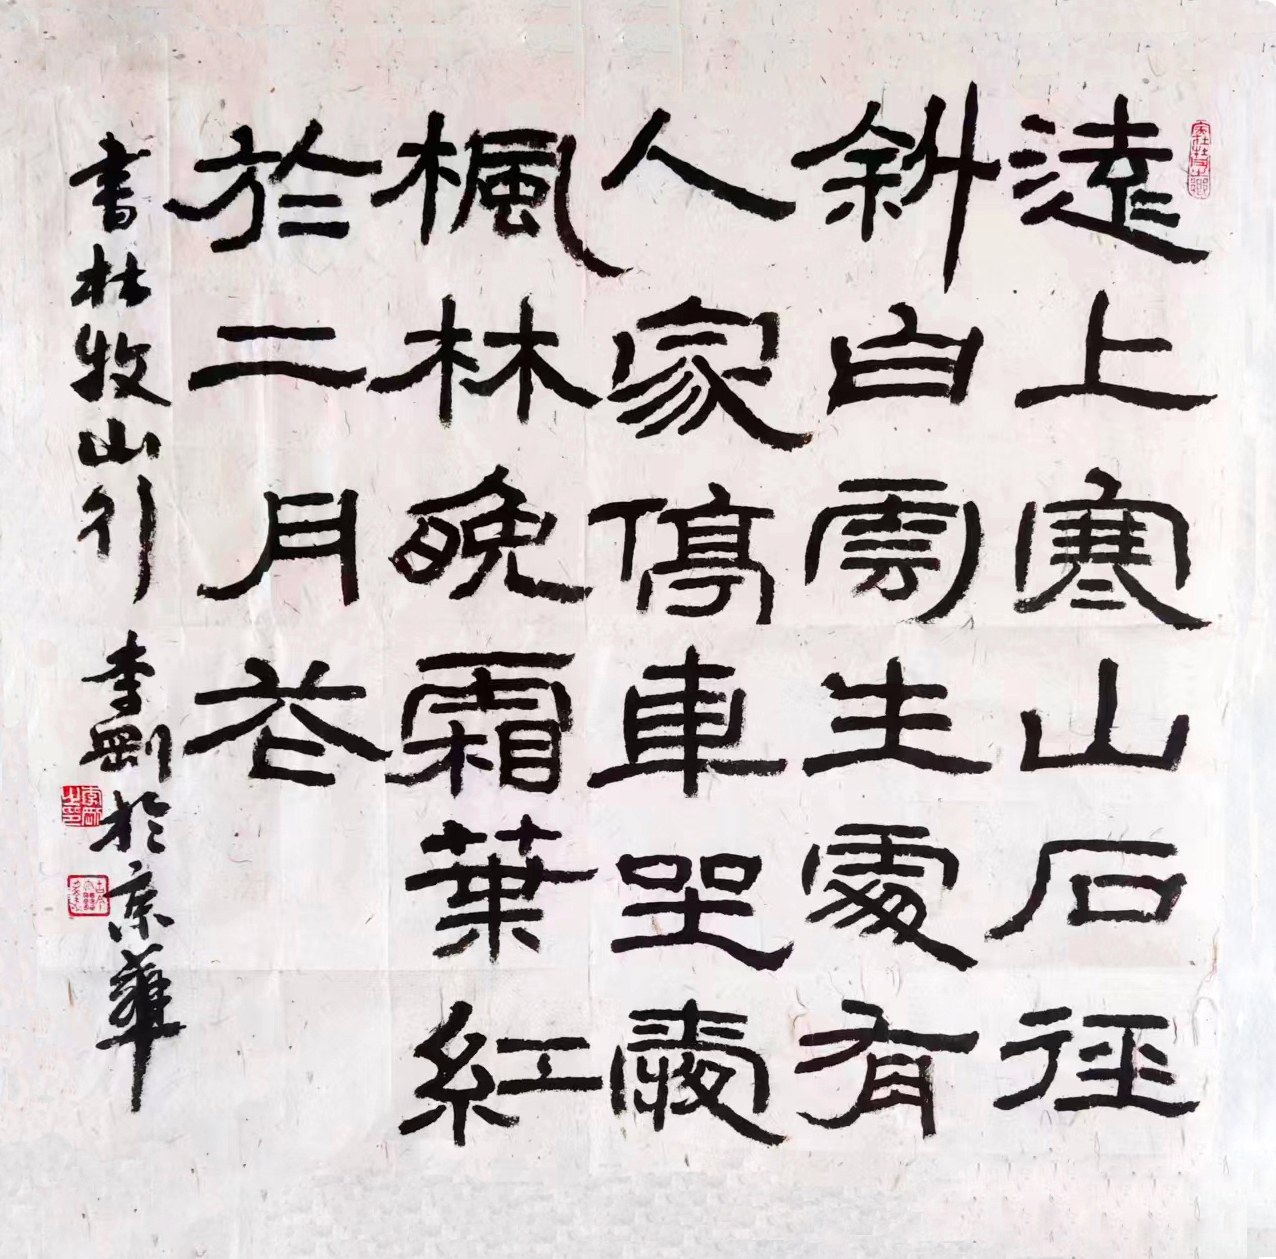 遠上寒山石徑
斜白雲生處有
人家停車坐愛
楓林晚霜葉紅
於二月花
書杜牧山行 李剛於京華
李剛之印